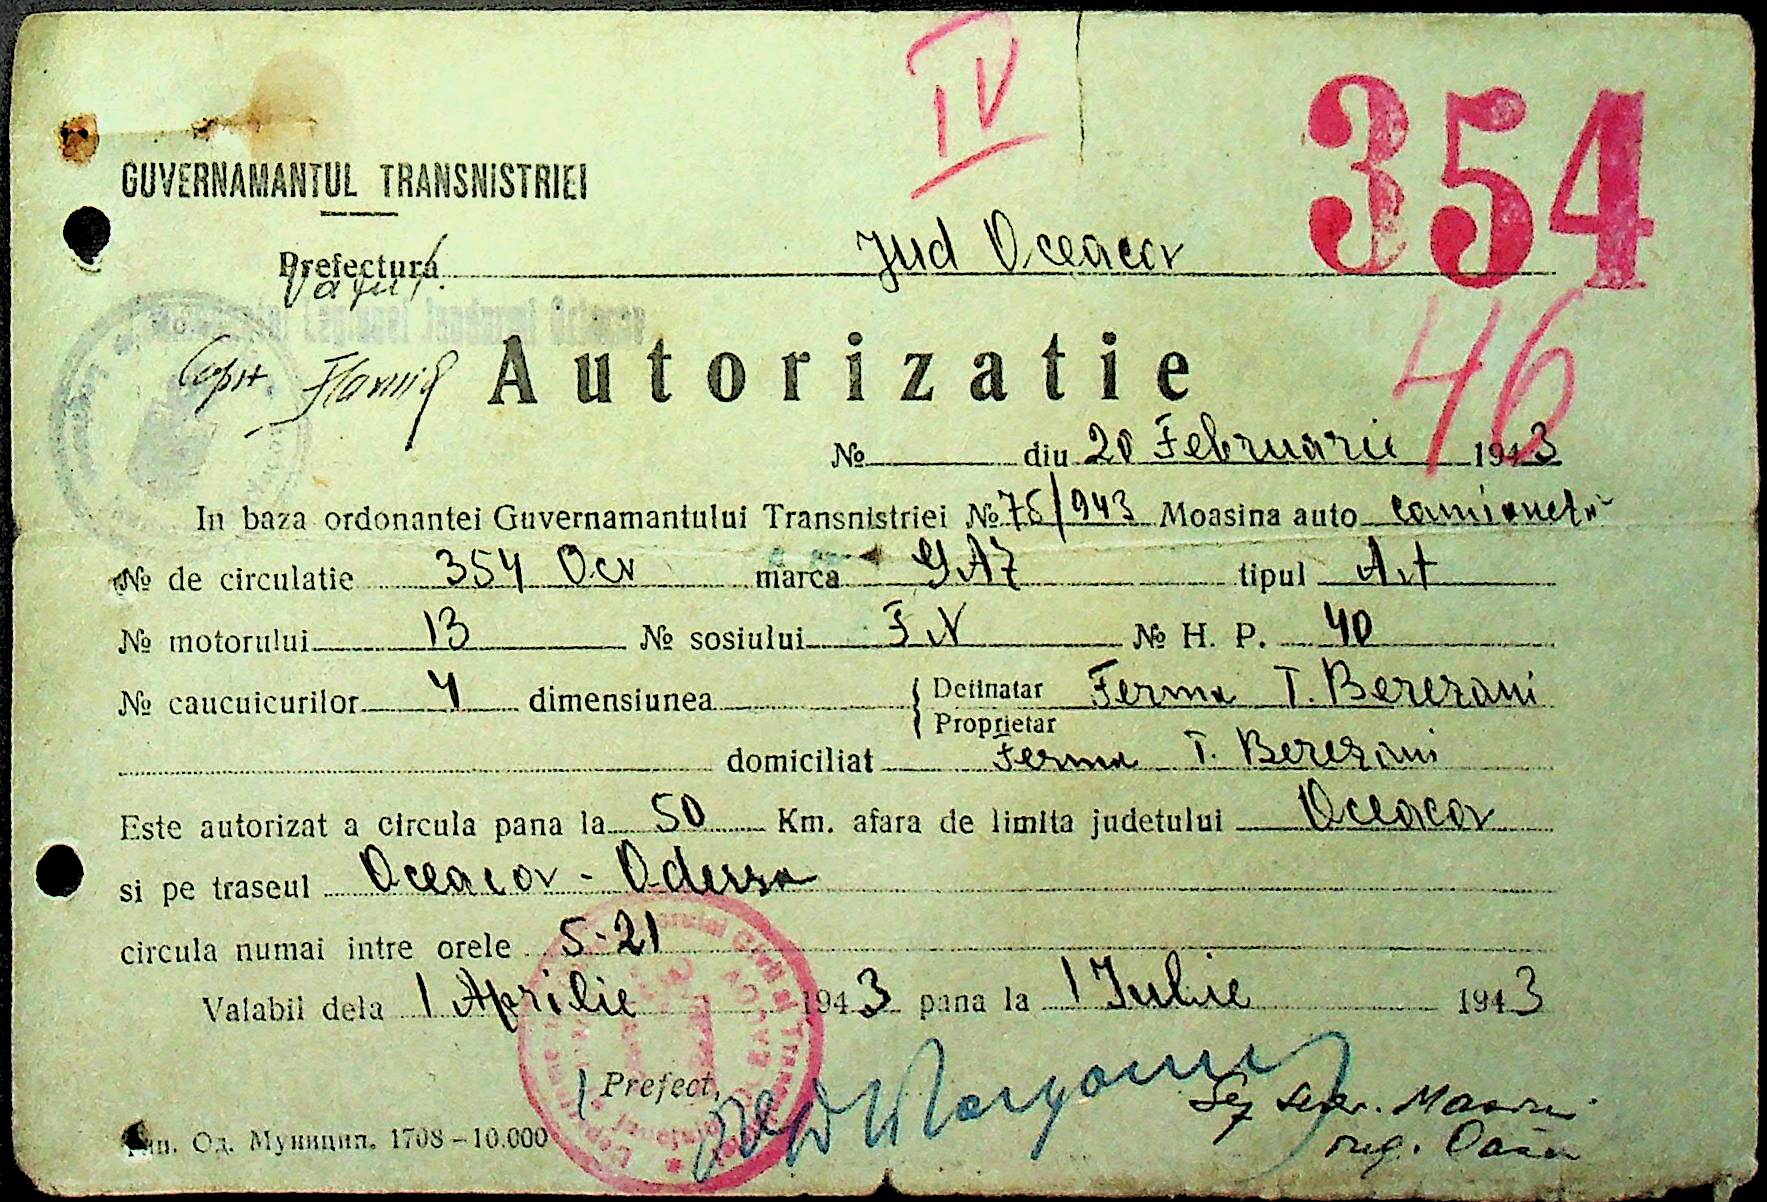 IV
354
GUVERNAMANTUL TRANSNISTRIEI
Prefectura Jud Oceacov
46
Autorizatie
№ diu 20 Februarie 1943
In baza ordonantei Guvernamantului Transnistriei № 76/943 Moasina auto camioneta
№ de circulatie 354 Ocv marca GAZ tipul A.t
№ motorului 13 № sosiului F.N № H. P. 40
№ caucuicurilor 4 dimensiunea Detinatar Ferma T. Berezani
Proprietar
domiciliat Ferma T. Berezani
Este autorizat a circula pana la 50 Km. afara de limita judetului Oceacov
si pe traseul Oceacov - Odessa
circula numai intre orele 5-21
Valabil dela 1 Aprilie 1943 pana la 1 Iulie 1943
Prefect,
Тип. Од. Муницип. 1708-10.000